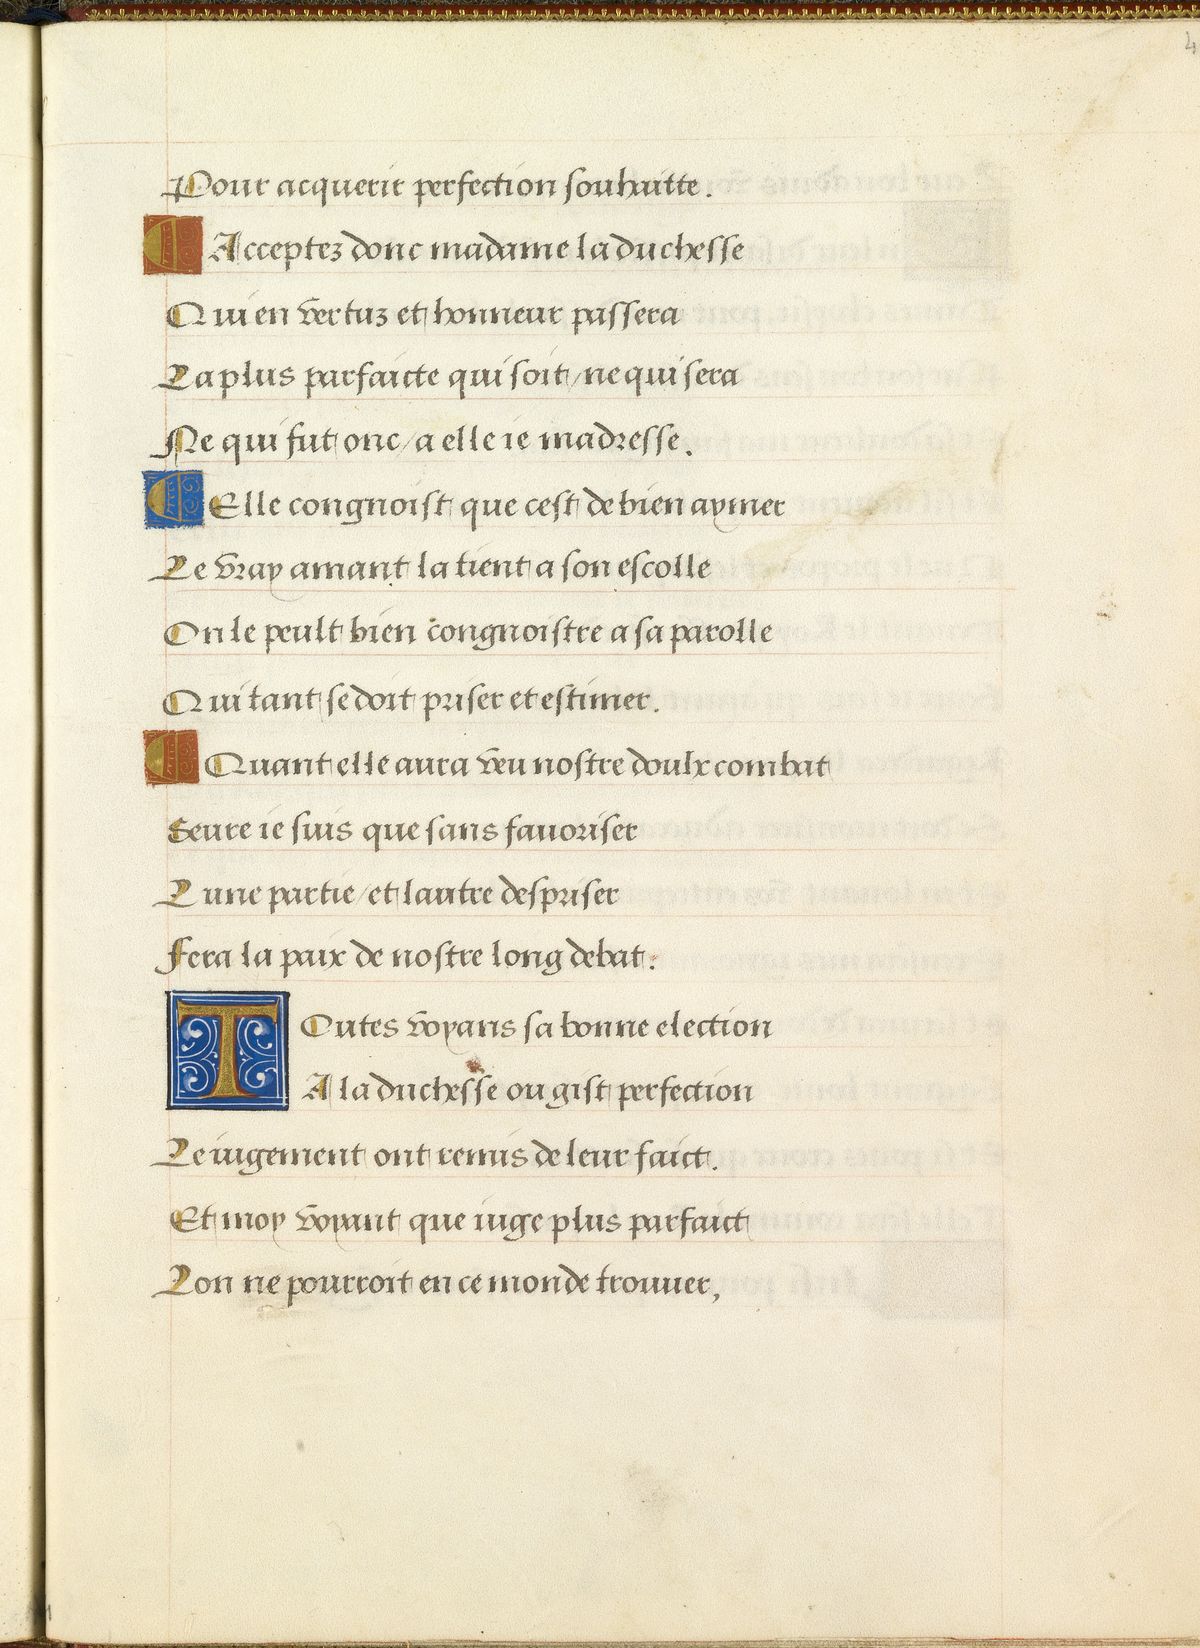 Pour acquerir perfection souhaitte.
Acceptez donc madame la duchesse
Qui en vertuz et honneur passera
La plus parfaicte qui soit/ne qui sera
Ne qui fut onc/a elle ie madresse.
Elle congnoist que cest de bien aymer
Le vray amant la tient a son escolle
On le peult bien congnoistre a sa parolle
Qui tant se doit priser et estimer.
Quant elle aura veu nostre doulx combat
Seure ie suis que sans fauoriser
Lune partie/et lautre despriser
Fera la paix de nostre long debat.
Toutes voyans sa bonne election
A la duchesse ou gist perfection
Le iugement ont remis de leur faict.
Et moy voyant que iuge plus parfaict
Lon ne pourroit en ce monde trouuer,